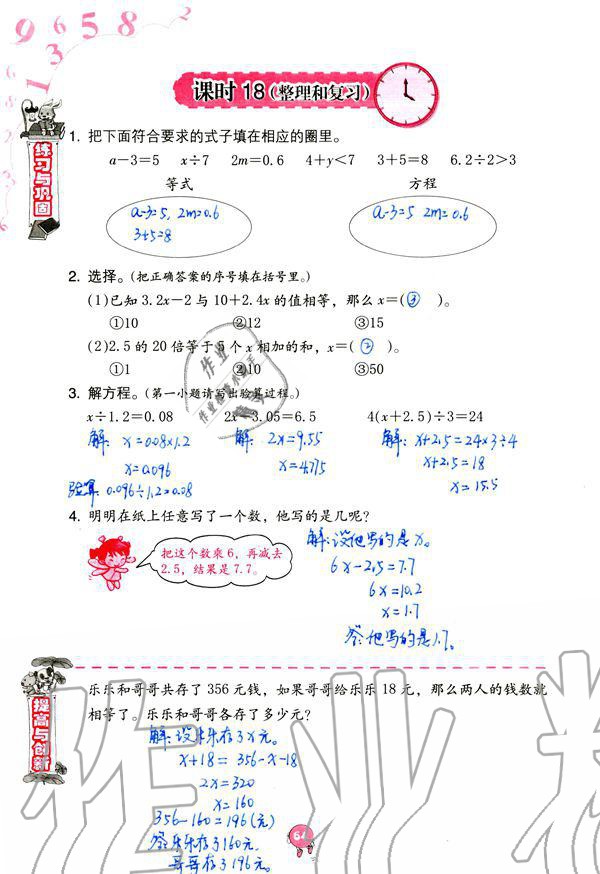 9 6 5 8 2
1 3 5 8
课时 18(整理和复习)
练习与巩固
1. 把下面符合要求的式子填在相应的圈里。
a－3＝5 x÷7 2m＝0.6 4＋y<7 3＋5＝8 6.2÷2>3
等式 方程
a-3=5, 2m=0.6 a-3=5 2m=0.6
3+5=8
2. 选择。(把正确答案的序号填在括号里。)
(1)已知 3.2x－2 与 10＋2.4x 的值相等，那么 x＝( ③ )。
①10 ②12 ③15
(2)2.5 的 20 倍等于5个 x 相加的和，x＝( ② )。
①1 ②10 ③50
3. 解方程。(第一小题请写出验算过程。)
x÷1.2＝0.08 2x－3.05＝6.5 4(x＋2.5)÷3＝24
解: x=0.08×1.2 解: 2x=9.55 解: x+2.5=24×3÷4
x=0.096 x=4.775 x+2.5=18
验算: 0.096÷1.2=0.08 x=15.5
4. 明明在纸上任意写了一个数，他写的是几呢？
把这个数乘 6，再减去
2.5，结果是 7.7。
解:设他写的是x。
6x-2.5=7.7
6x=10.2
x=1.7
答:他写的是1.7。
提高与创新
乐乐和哥哥共存了 356 元钱，如果哥哥给乐乐 18 元，那么两人的钱数就
相等了。乐乐和哥哥各存了多少元？
解:设乐乐存了x元。
x+18=356-x-18
2x=320
x=160
356-160=196(元)
答:乐乐存了160元,
哥哥存了196元。
64
作业